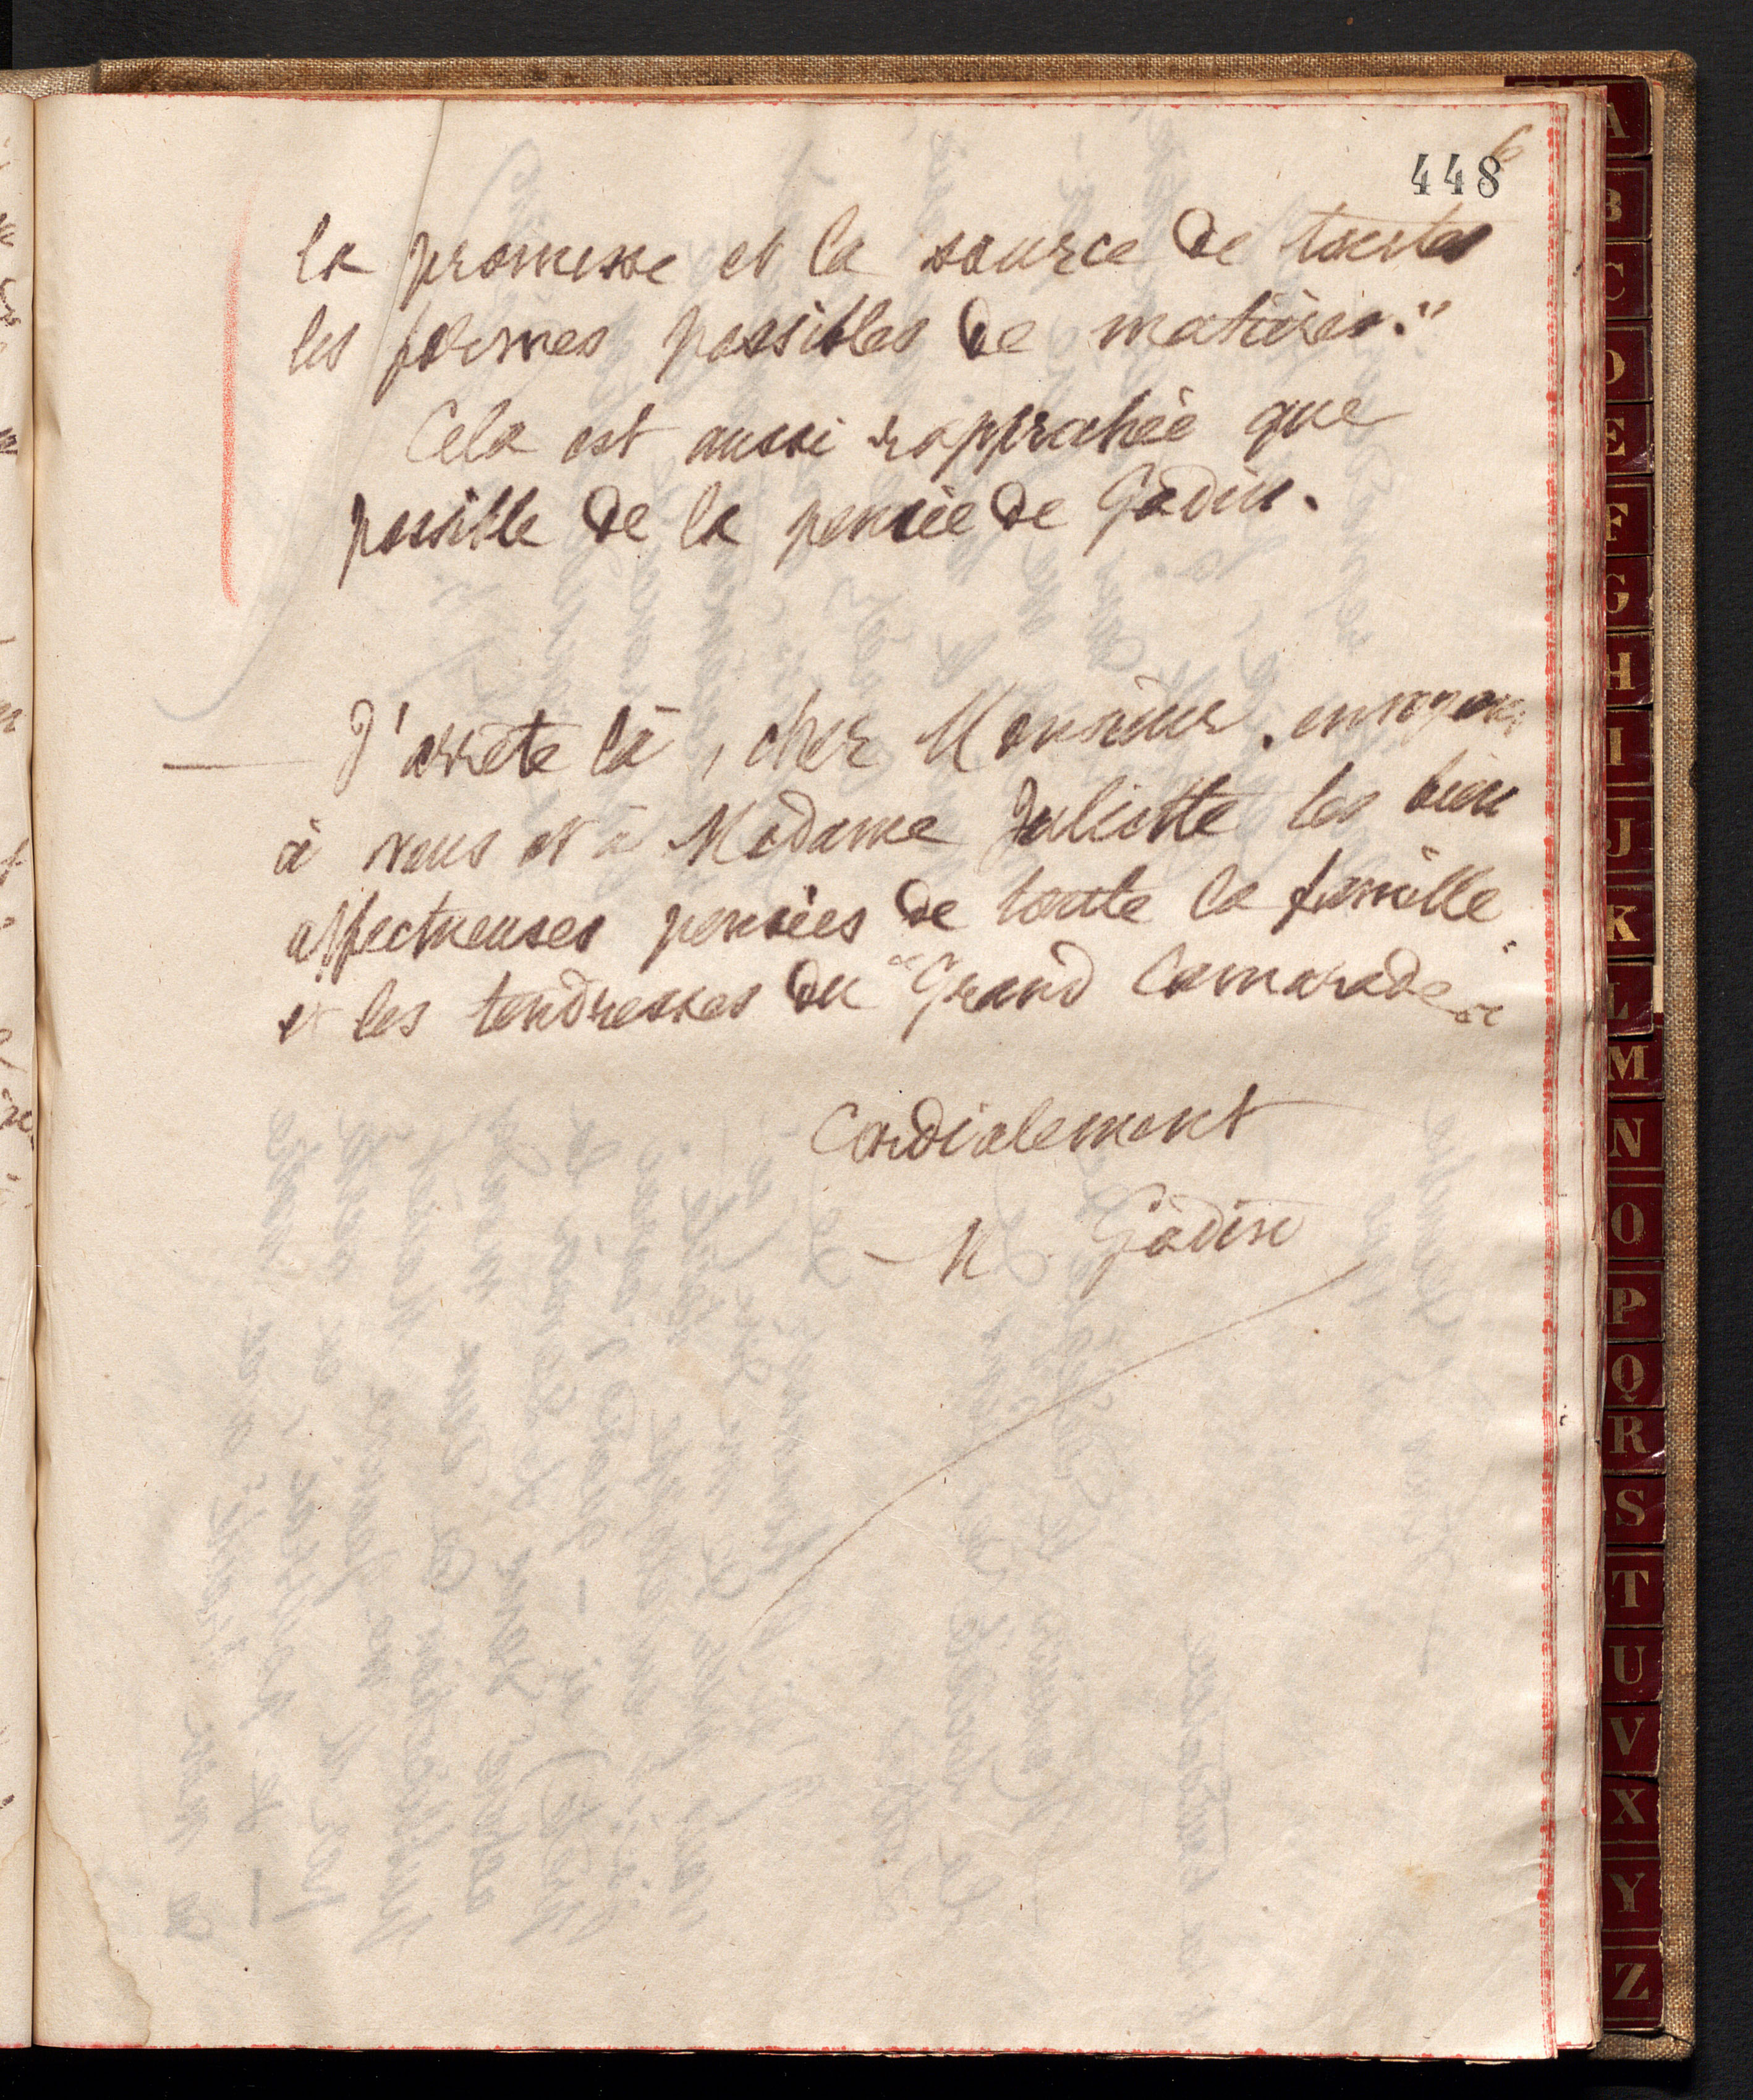 448
6
la promesse et la source de toutes
les formes possibles de matières."
Cela est aussi rapprochée que
possible de la pensée de Godin.
J'arrête là, cher Monsieur. envoyons
à vous et à Madame Juliette les bien
affectueuses pensées de toute la famille
et les tendresses du "Grand Camarade"
Cordialement
M. Godin
A
B
C
D
E
F
G
H
I
J
K
L
M
N
O
P
Q
R
S
T
U
V
X
Y
Z